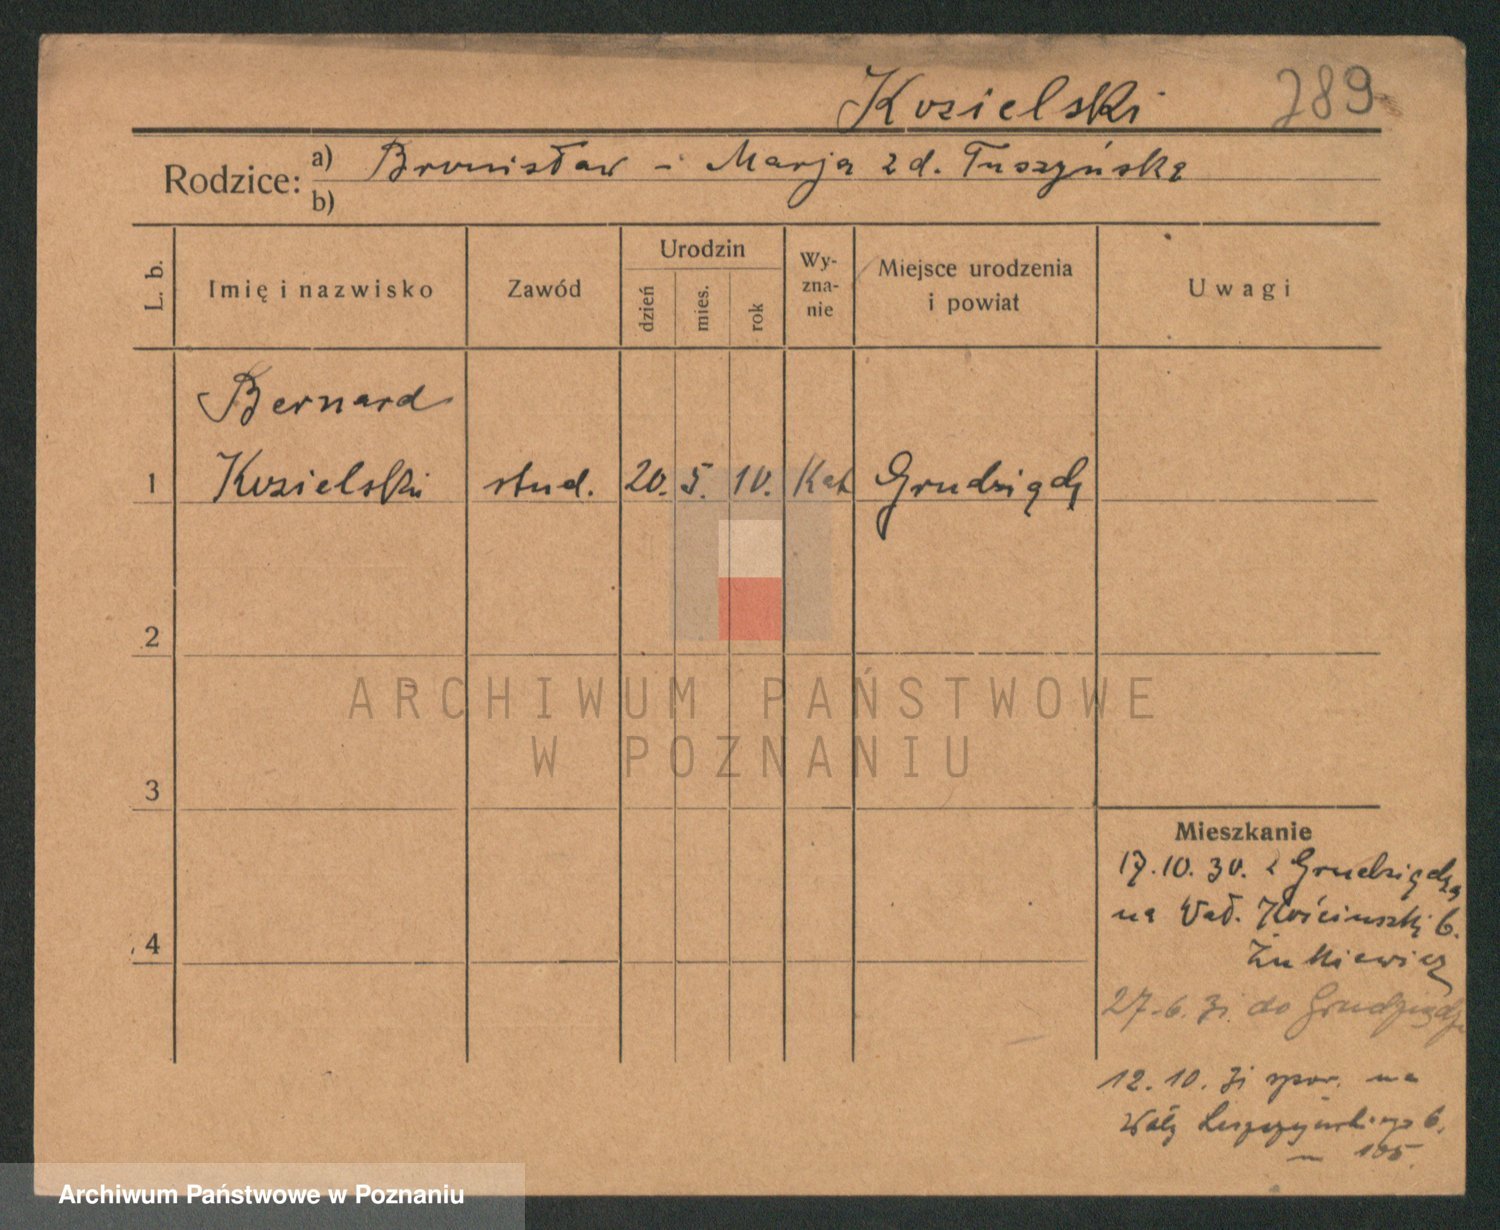 Kozielski 289
Rodzice: a) Bronisław – Marja z d. Tuszyńska
b)
L. b. Imię i nazwisko Zawód Urodzin dzień mies. rok Wy-zna-nie Miejsce urodzenia i powiat Uwagi
Bernard
1 Kozielski stud. 20. 5. 10. Kat Grudziądz
2
ARCHIWUM PAŃSTWOWE
W POZNANIU
3
Mieszkanie
17.10.30. z Grudziądza
na Wał. Kościuszki 6.
4
27.6.31 do Grudziądz
12.10.31 na
Wały Leszczyńskiego 6.
105.
Archiwum Państwowe w Poznaniu